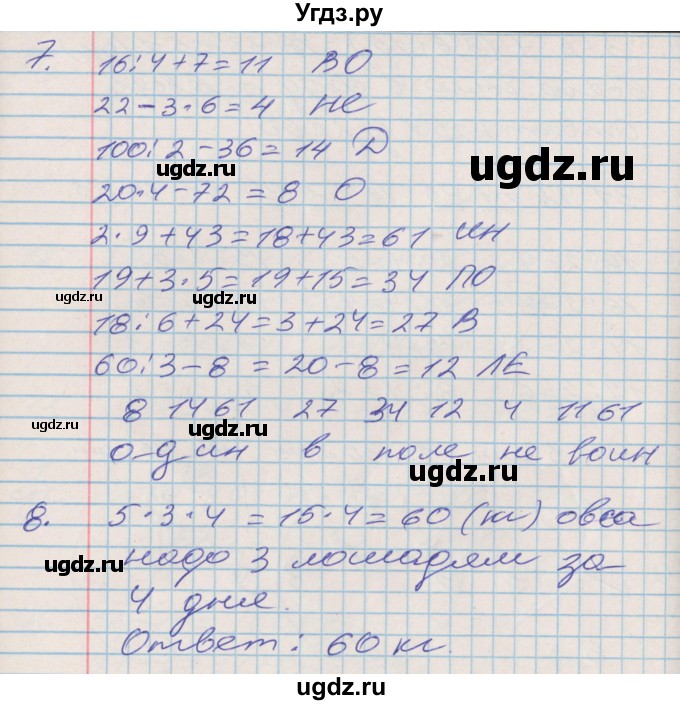 Угдз.ру
7. 16:4+7=11 ВО
22-3·6=4 НЕ
100:2-36=14 Д
ugdz.ru
ugdz.ru
20·4-72=8 О
2·9+43=18+43=61 ИН
19+3·5=19+15=34 ПО
ugdz.ru
ugdz.ru
18:6+24=3+24=27 В
60:3-8=20-8=12 ЛЕ
8 14 61 27 34 12 4 11 61
ugdz.ru
ugdz.ru
о-дин в поле не воин
ugdz.ru
8. 5·3·4=15·4=60 (кг) овса
надо 3 лошадям за
ugdz.ru
ugdz.ru
4 дня.
Ответ: 60 кг.
ugdz.ru